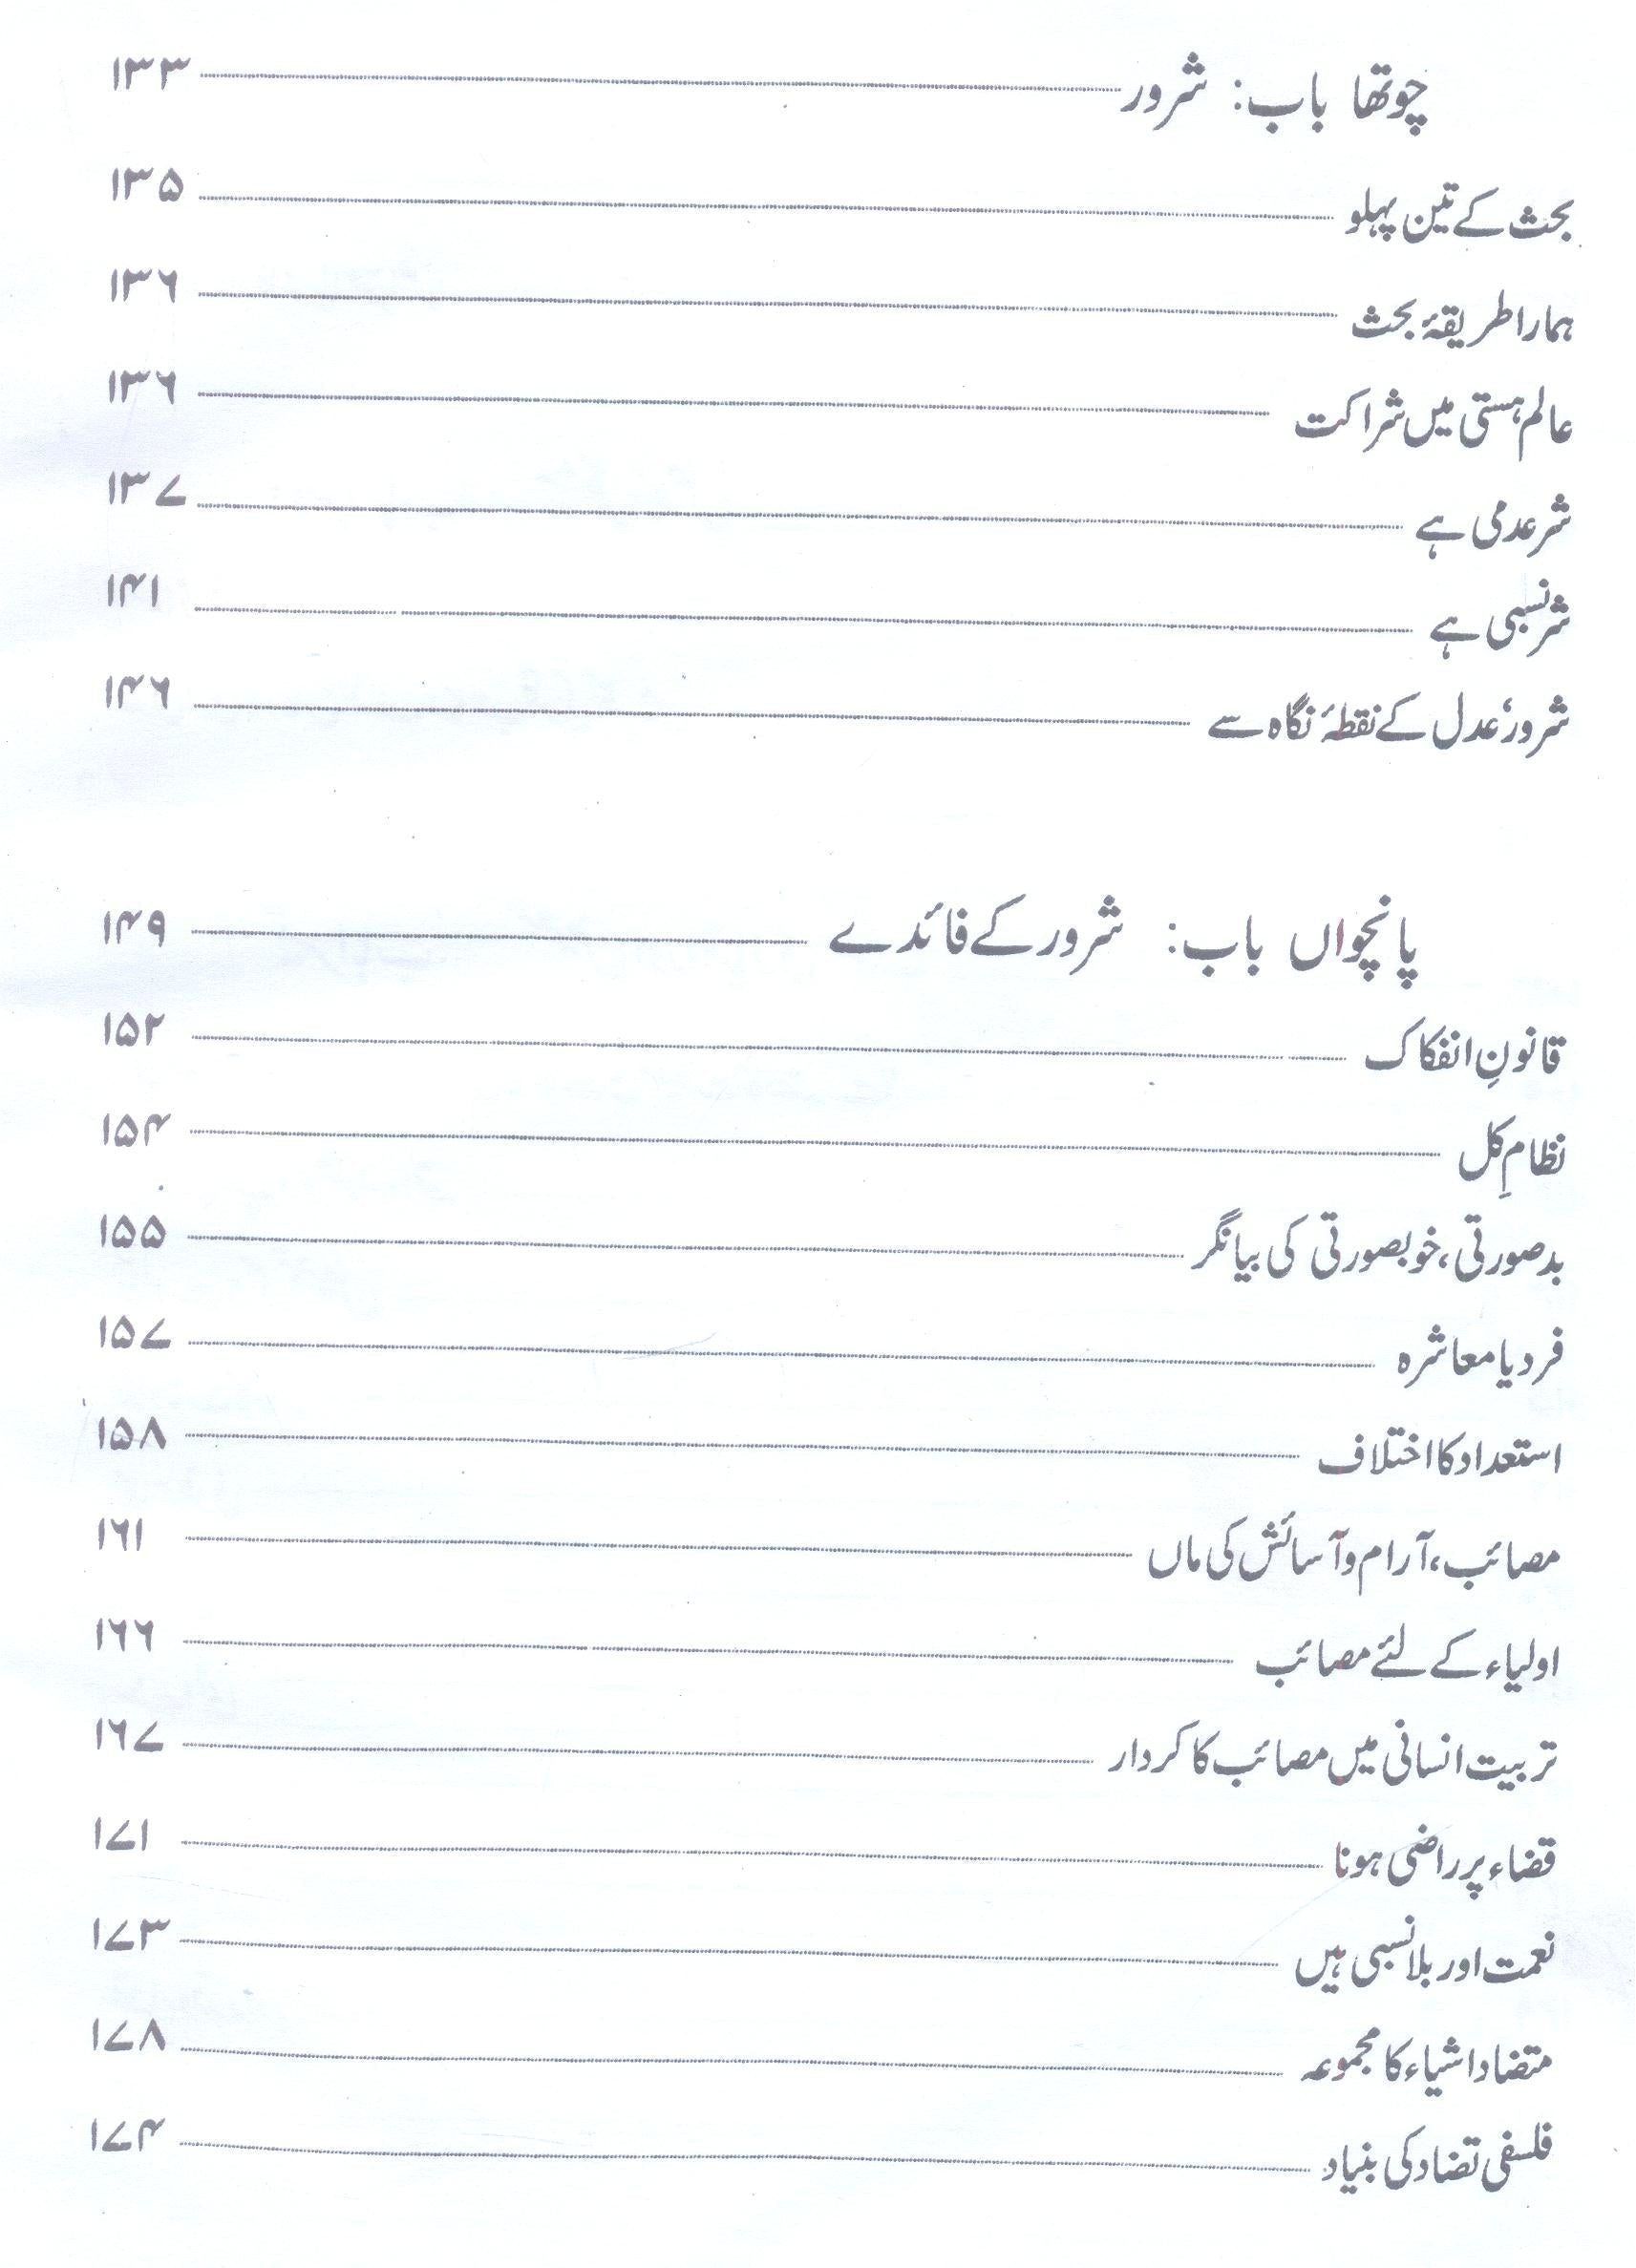 چوتھا باب: شرور ۱۳۳
بحث کے تین پہلو ۱۳۵
ہمارا طریقۂ بحث ۱۳۶
عالم ہستی میں شراکت ۱۳۶
شر عدمی ہے ۱۳۷
شر نسبی ہے ۱۴۱
شرور، عدل کے نقطۂ نگاہ سے ۱۴۶
پانچواں باب: شرور کے فائدے ۱۴۹
قانونِ انفکاک ۱۵۲
نظامِ کل ۱۵۴
بدصورتی، خوبصورتی کی بیانگر ۱۵۵
فرد یا معاشرہ ۱۵۷
استعداد کا اختلاف ۱۵۸
مصائب، آرام و آسائش کی ماں ۱۶۱
اولیاء کے لئے مصائب ۱۶۶
تربیت انسانی میں مصائب کا کردار ۱۶۷
قضاء پر راضی ہونا ۱۷۱
نعمت اور بلا نسبی ہیں ۱۷۳
متضاد اشیاء کا مجموعہ ۱۷۸
فلسفی تضاد کی بنیاد ۱۷۴